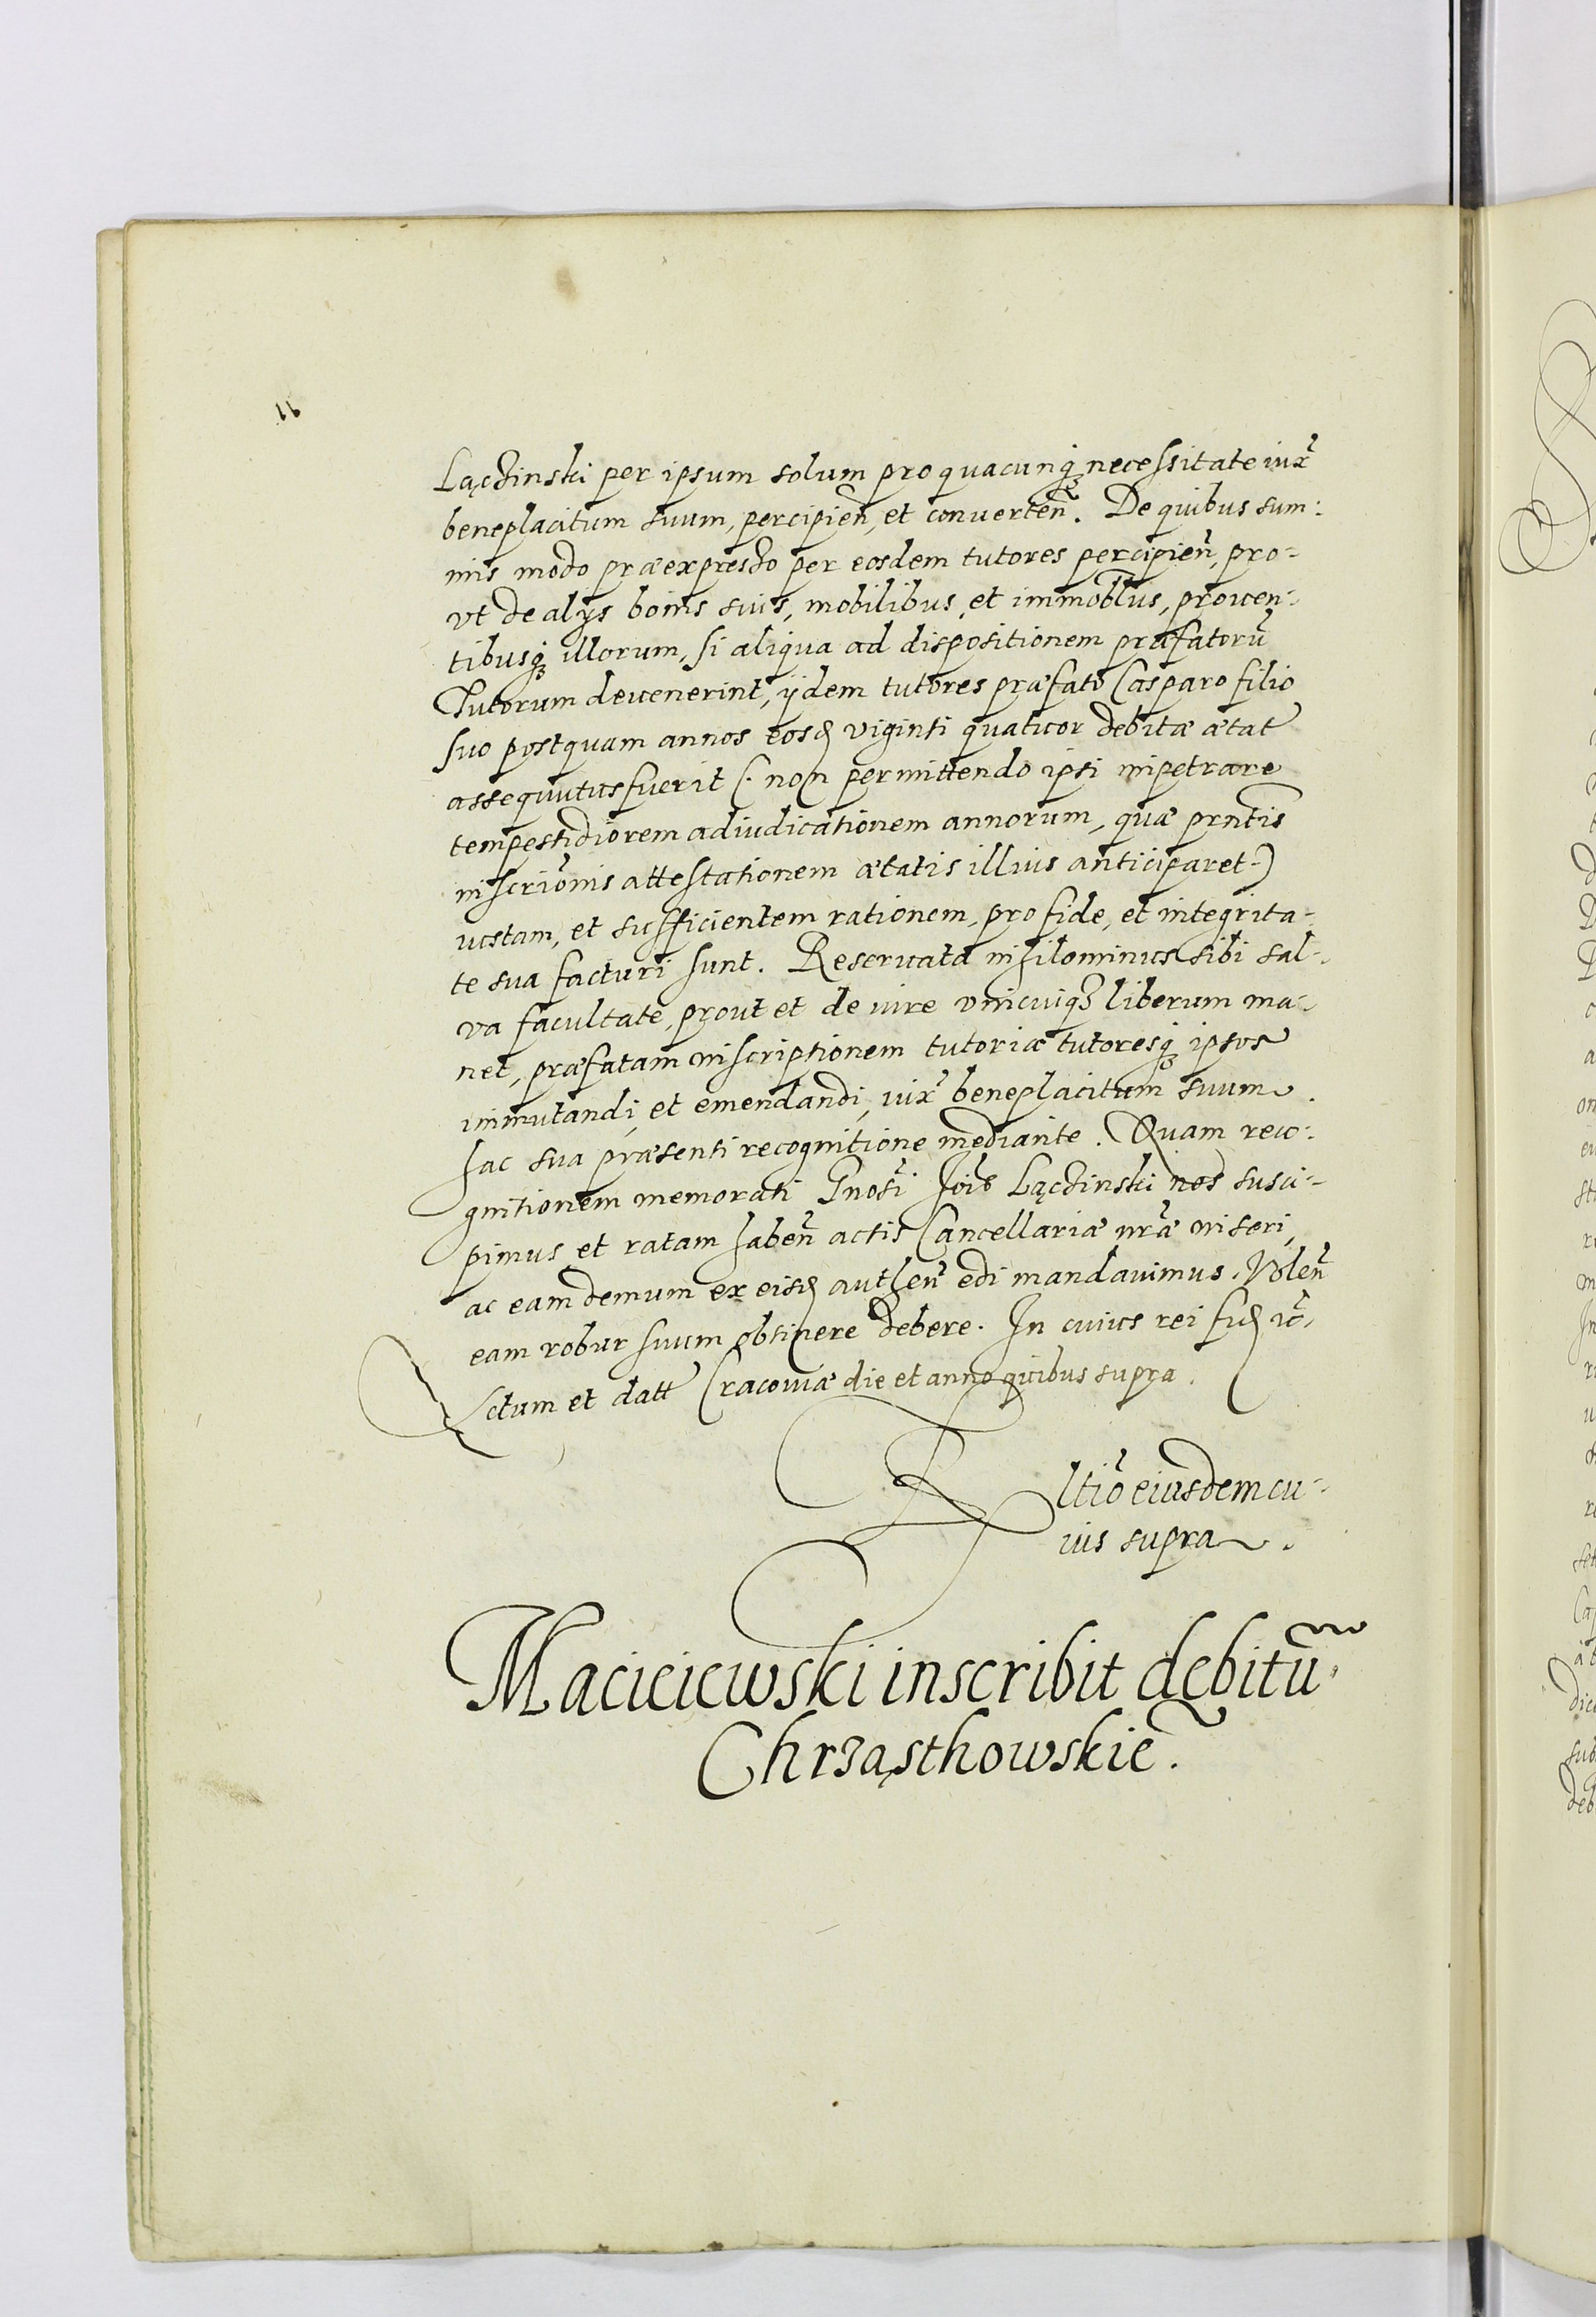 Łączinski per ipsum solum pro quacunq₃ necessitate iux̃
beneplacitum suum, percipień, et conuerteñ. De quibus sum:
mis modo præexpresso per eosdem tutores percipień, pro-
vt de alys bonis suis, mobilibus, et immobľbus, prouen-
tibusq₃ illorum, si aliqua ad dispositionem præfatorũ
Tutorum deuenerint, ijdem tutores præfato Casparo filio
suo postquam annos eosḍ viginti quatuor debitæ ætat̃
assequutus fuerit (. non permittendo ipsi impetrare
tempestidiorem adiudicationem annorum, quæ prñtis
inscriõnis attestationem ætatis illius anticiparet .)
iustam, et sufficientem rationem, pro fide, et integrita-
te sua facturi sunt. Reseruata nihilominus sibi sal-
va facultate, prout et de iure vnicuiq₃ liberum ma-
net, præfatam inscriptionem tutoriæ tutoresq₃ ipsos
immutandi, et emendandi, iux̃ beneplacitum suum.
hac sua præsenti recognitione mediante. Quam reco-
gnitionem memorati Gnosi Joĩs Łączinski nos susci-
pimus et ratam habeñ actis Cancellariæ nrãe inseri,
ac eam demum ex eisḍ autheñ edi mandauimus. Voleñ
eam robur suum obtinere debere. In cuius rei fiḍ ic̃.
Actum et datt Cracouiæ die et anno quibus supra.
Rltiõ eiusdem cu-
ius supra.
Macieiewski inscribit debitũ
Chrząsthowskie.